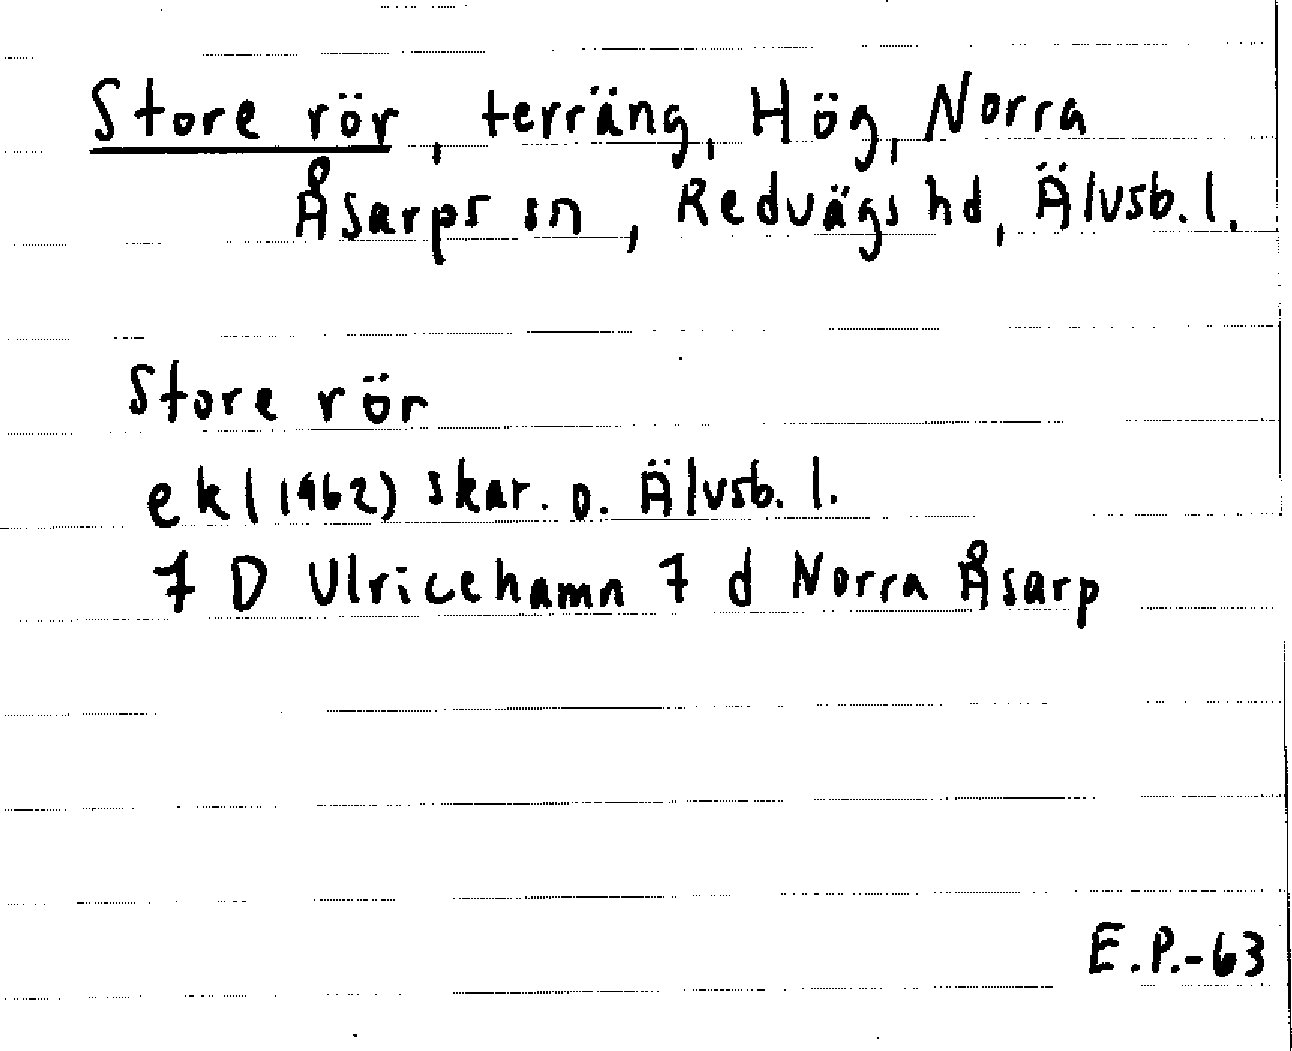 Store rör, terräng, Hög, Norra
Åsarps sn, Redvägs hd, Älvsb. l.
Store rör
ekl (1962) skar. o. Älvsb. l.
7 D Ulricehamn 7 d Norra Åsarp
E.P.-63